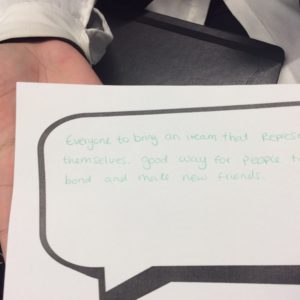 Everyone to bring an iteam that Represen
themselves. good way for people to
bond and make new friends.